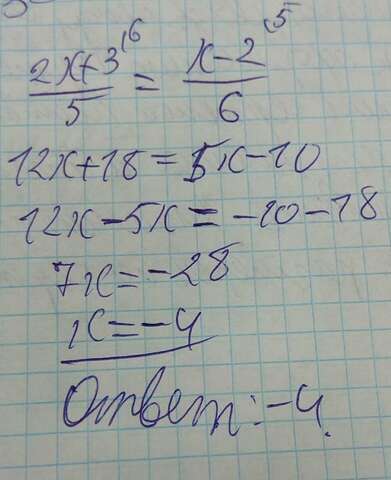 2x+3⁽⁶ / 5 = x-2⁽⁵ / 6
12x+18=5x-10
12x-5x=-10-18
7x=-28
x=-4
Ответ:-4.